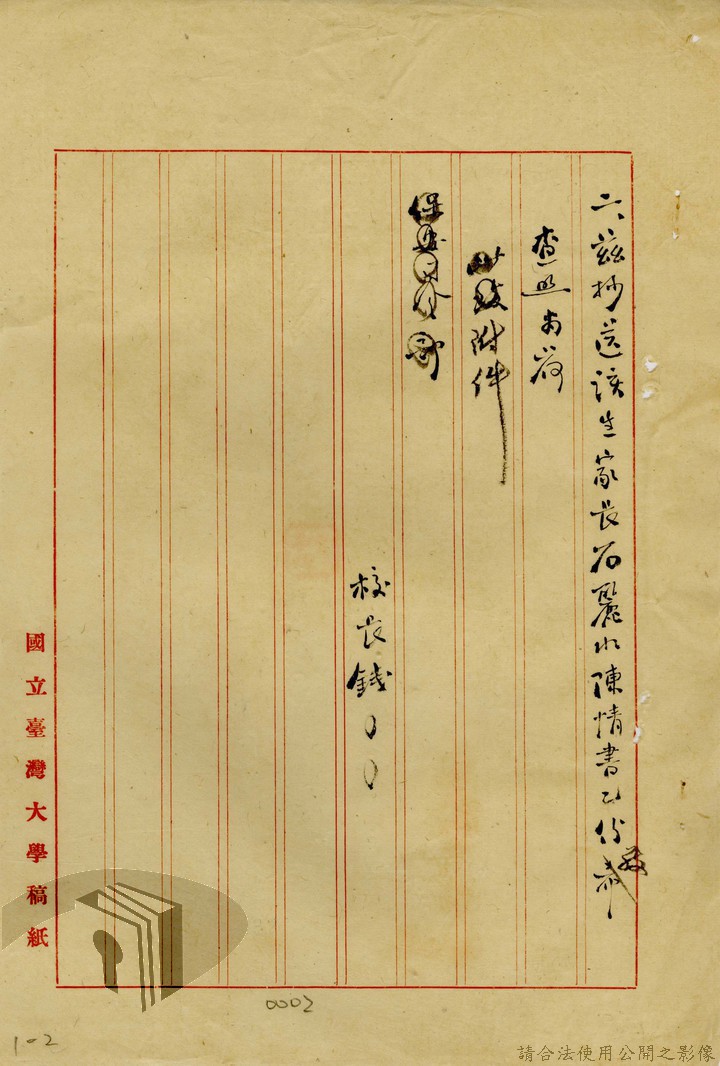 六茲抄送該生家長石麗水陳情書乙份敬希
查照為荷
此致附件
保安司令部
校長錢〇〇
國立臺灣大學稿紙
0002
1-2
請合法使用公開之影像